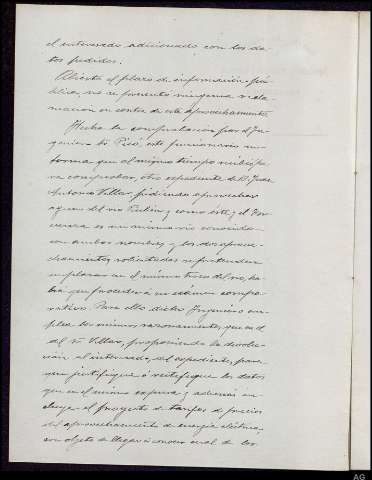 el interesado adicionado con los da-
tos pedidos.
Abierto el plazo de información pú-
blica, no se presentó ninguna recla-
mación en contra de este aprovechamiento.
Hecha la confrontación por el In-
geniero Sr. Picó, este funcionario in-
forma que al mismo tiempo recibió pa-
ra comprobar, otro expediente de D. Juan
Antonio Villar, pidiendo aprovechar
aguas del río y como éste y el
es un mismo río conocido
con ambos nombres, y los dos aprove-
chamientos solicitados se pretenden
emplazar en el mismo trozo del río, ha-
brá que proceder á un examen compa-
rativo. Para ello dicho Ingeniero em-
plea los mismos razonamientos, que en el
del Sr. Villar, proponiendo la devolu-
ción al interesado, del expediente, para
que justifique ó rectifique los datos
que en el mismo expresa y además in-
cluya el proyecto de tarifas de precios
del aprovechamiento de energía eléctrica,
con objeto de llegar á conocer cual de los
AG